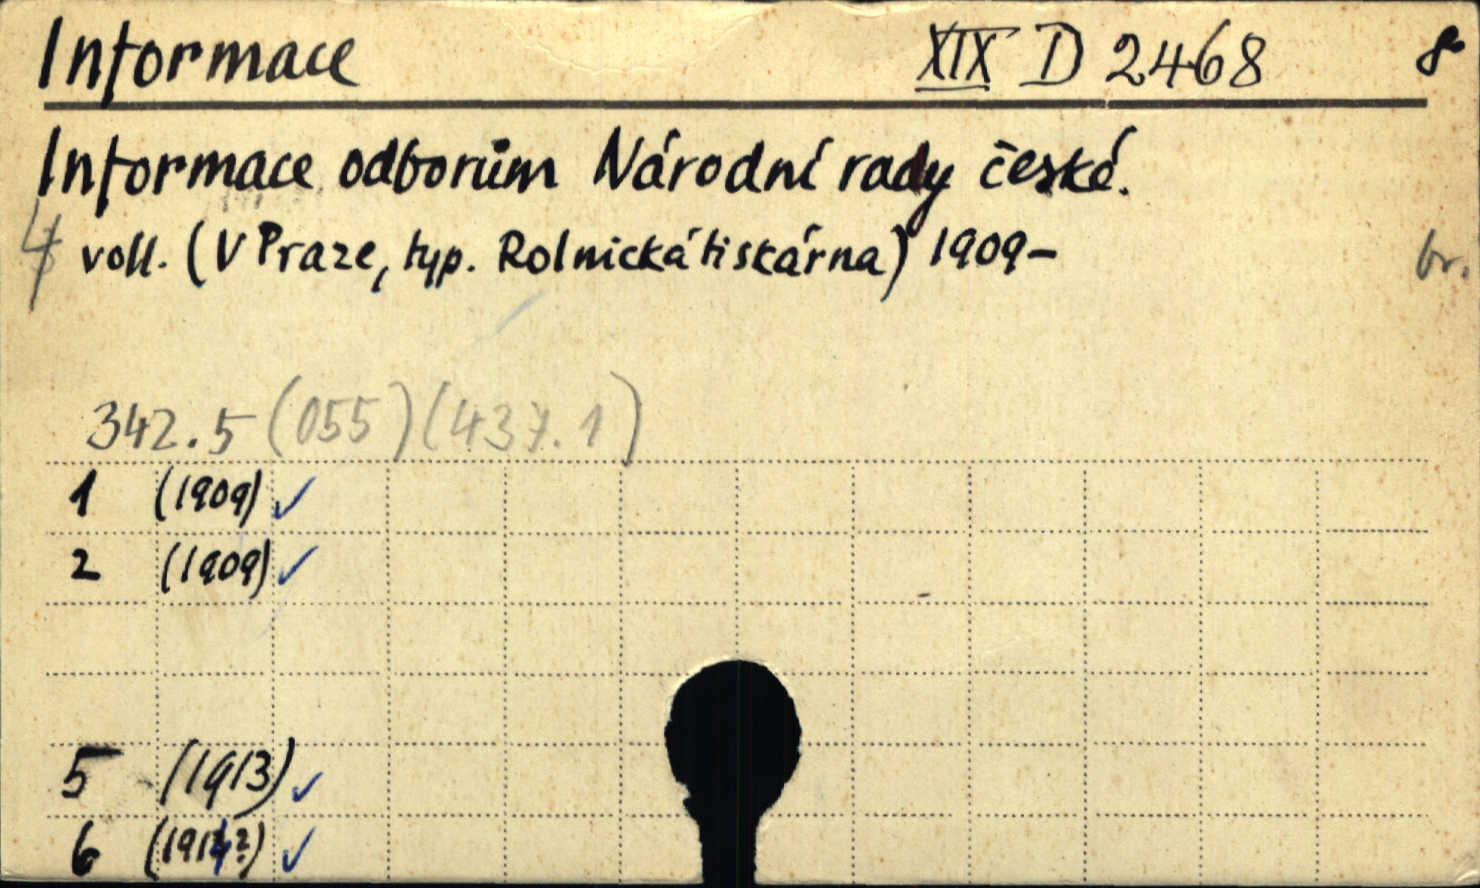 Informace XIX D 2468 8°
Informace odborům Národní rady české.
4 voll. (V Praze, typ. Rolnická tiskárna) 1909– br.
342.5 (055)(437.1)
1 (1909) ✓
2 (1909) ✓
5 (1913) ✓
6 (1914?) ✓